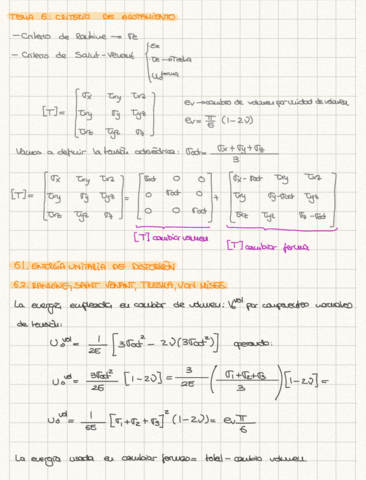 TEMA 6: CRITERIO DE AGOTAMIENTO
- Criterio de Rankine → σe
- Criterio de Saint-Venant { εx
σe → Tresca
Uo forma
[T] = [ σx τxy τxz
τxy σy τyz
τxz τyz σz ]
ev → cambio de volumen por unidad de volumen
ev = π/E (1-2ν)
Vamos a definir la tensión octaédrica: σoct = (σx + σy + σz)/3
[T] = [ σx τxy τxz
τxy σy τyz
τxz τyz σz ] = [ σoct 0 0
0 σoct 0
0 0 σoct ] + [ σx-σoct τxy τxz
τxy σy-σoct τyz
τxz τyz σz-σoct ]
[T] cambiar volumen
[T] cambiar forma
6.1. ENERGÍA UNITARIA DE DISTORSIÓN
6.2. RANKINE, SAINT VENANT, TRESCA, VON MISES
La energía empleada en cambiar de volumen: Uo^vol por componentes normales
de tensión:
Uo^vol = 1/2E [3σoct² - 2ν(3σoct²)] operando:
Uo^vol = 3σoct²/2E [1-2ν] = 3/2E ((σ1+σ2+σ3)/3) [1-2ν] =
Uo^vol = 1/6E [σ1+σ2+σ3]² (1-2ν) = ev π/6
La energía usada en cambiar forma = total - cambio volumen